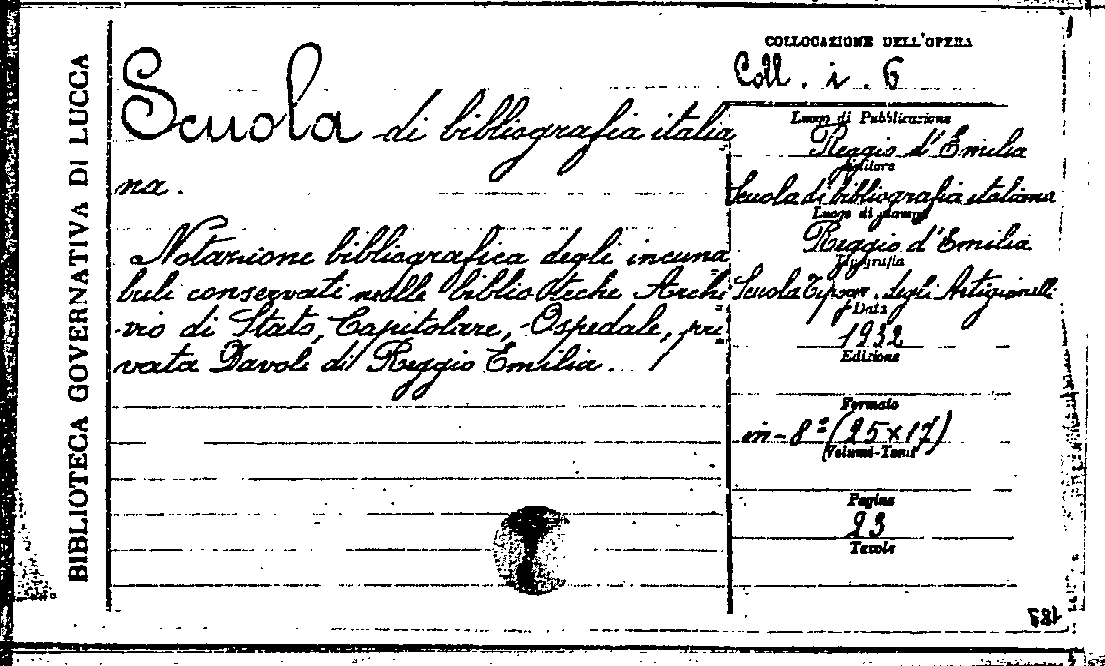 BIBLIOTECA GOVERNATIVA DI LUCCA
Scuola di bibliografia italia
na.
Notazione bibliografica degli incuna
buli conservati nelle biblioteche Archi
vio di Stato, Capitolare, Ospedale, pri
vata Davoli di Reggio Emilia.
COLLOCAZIONE DELL'OPERA
Coll. i. 6
Luogo di Pubblicazione
Reggio d'Emilia
Editore
Scuola di bibliografia italiana
Luogo di stampa
Reggio d'Emilia
Tipografia
Scuola Tipogr. degli Artigianelli
Data
1932
Edizione
Formato
in-8º (25×17)
Volumi-Tomi
Pagine
23
Tavole